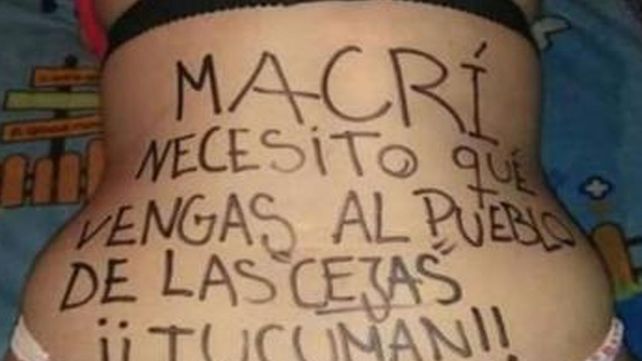 MACRÍ
NECESITO QUÉ
VENGAS AL PUEBLO
DE LAS "CEJAS"
¡¡TUCUMAN!!